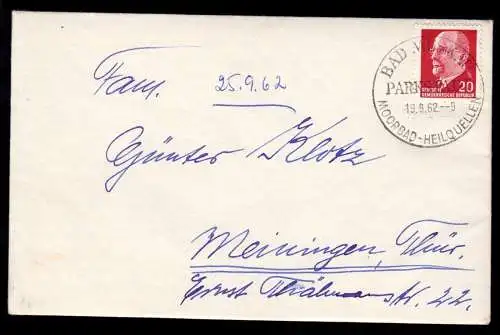 Fam. 25.9.62
Günter Klotz
Meiningen, Thür.
Ernst Thälmann Str. 22.
BAD
PARK
19.9.62--9
MOORBAD-HEILQUELLEN
20
DEUTSCHE
DEMOKRATISCHE REPUBLIK